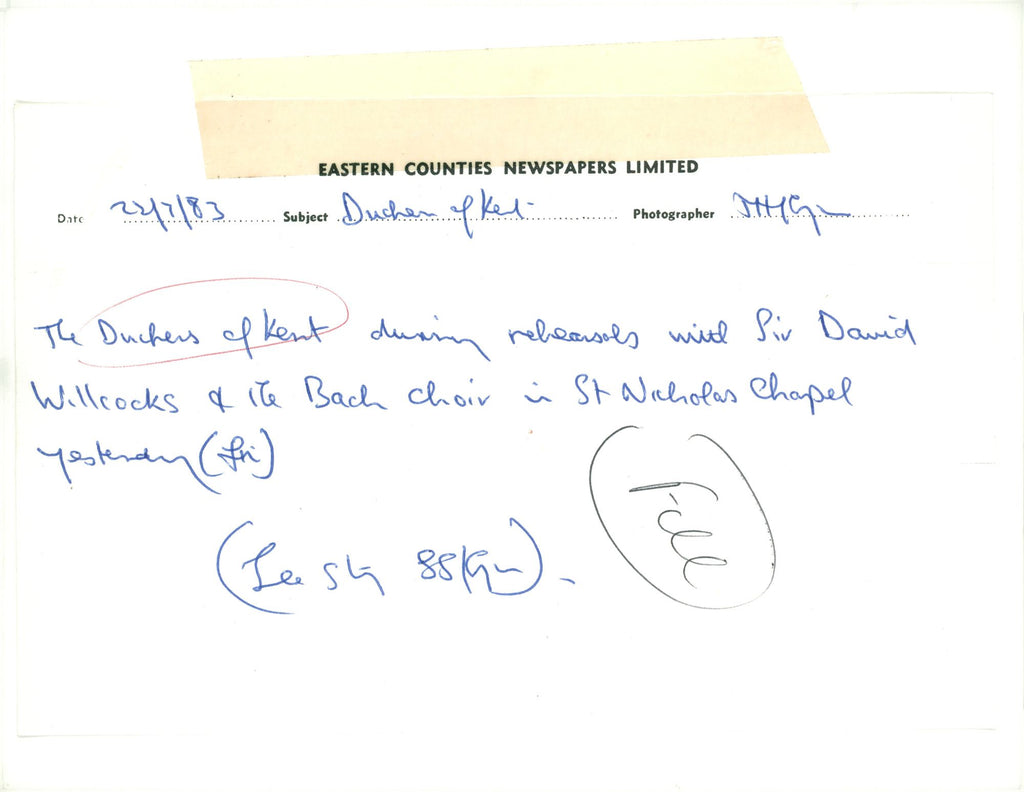 EASTERN COUNTIES NEWSPAPERS LIMITED
Date 22/7/83 Subject Duchess of Kent Photographer
The Duchess of Kent during rehearsals with Sir David
Willcocks & the Bach Choir in St Nicholas Chapel
yesterday (Fri)
(See sty